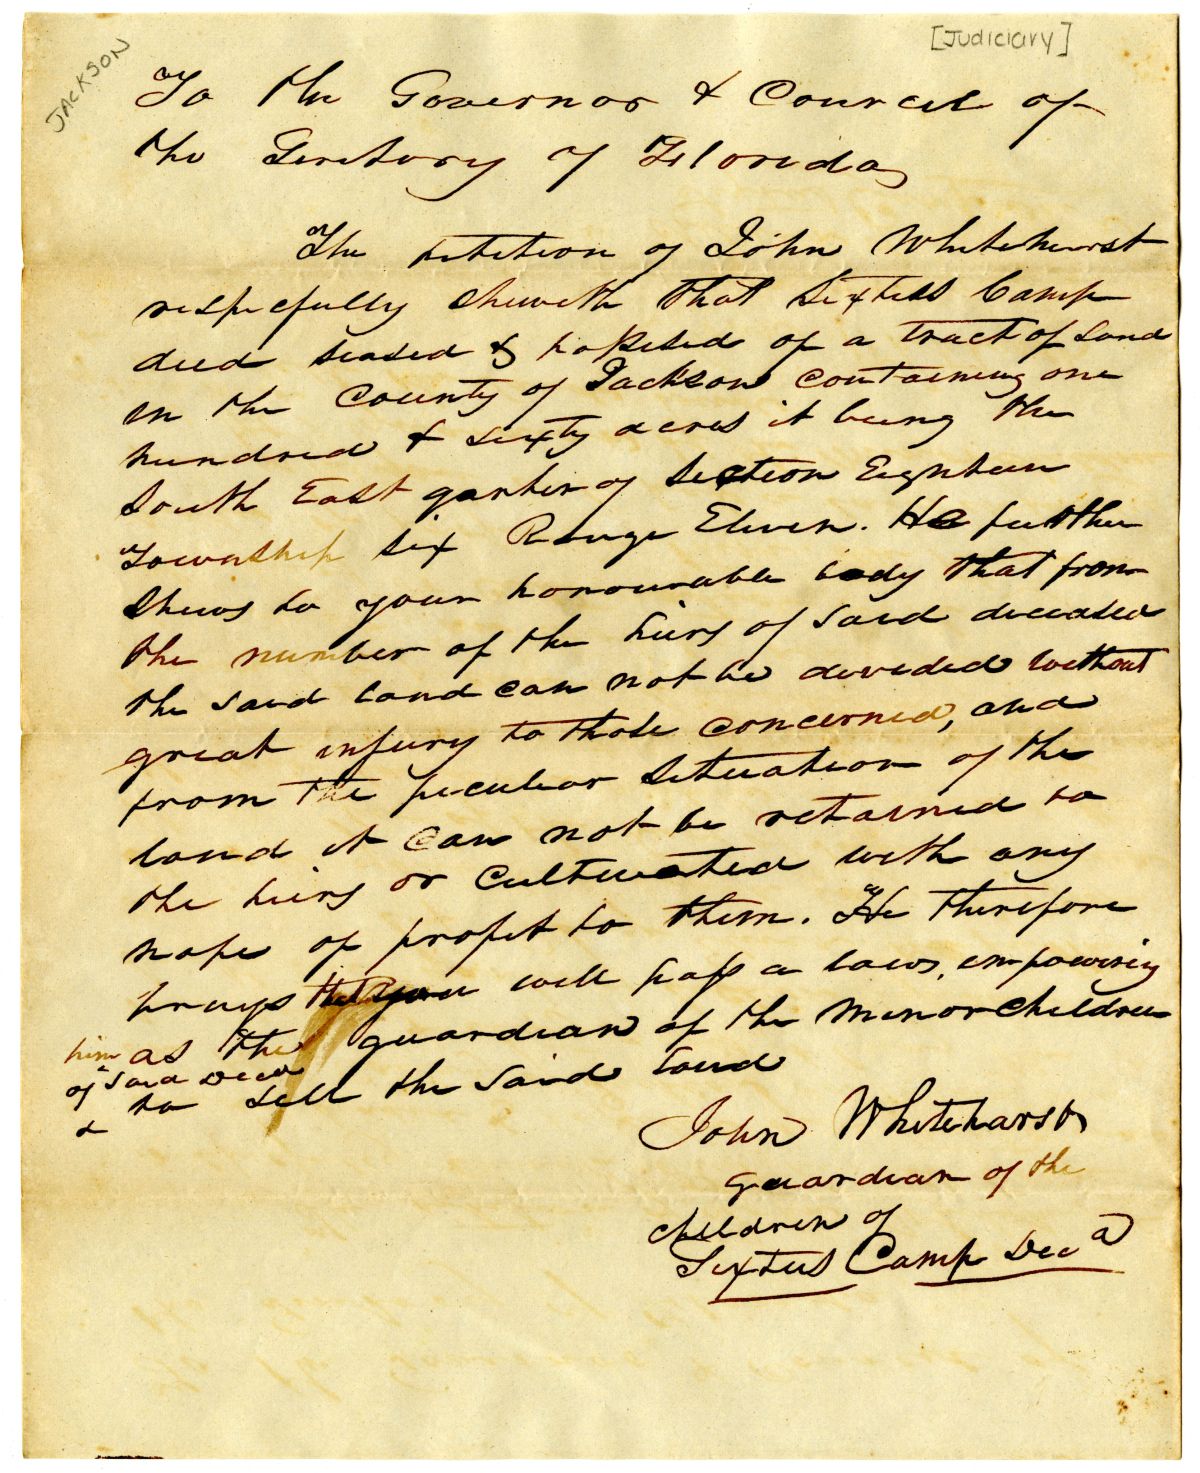 JACKSON
[Judiciary]
To the Governor & Councel of
the Teritory of Florida,
The petition of John Whitehurst
respecfully sheweth that Sixtus Camp
died seased & possesed of a tract of Land
in the County of Jackson containing one
hundred & sixty acres it being the
South East quarter of Section Eighteen
Township six Range Eleven. He further
Shews to your honourable body that from
the number of the heirs of said deceased
the said land can not be devided without
great injury to those concerned, and
from the peculiar situation of the
land it can not be retained to
the heirs or cultivated with any
hope of profit to them. He therefore
prays that you will pass a law, empowering
him as the guardian of the minor children
of said Decd
& to sell the said land
John Whitehurst
guardian of the
children of
Sixtus Camp Decd